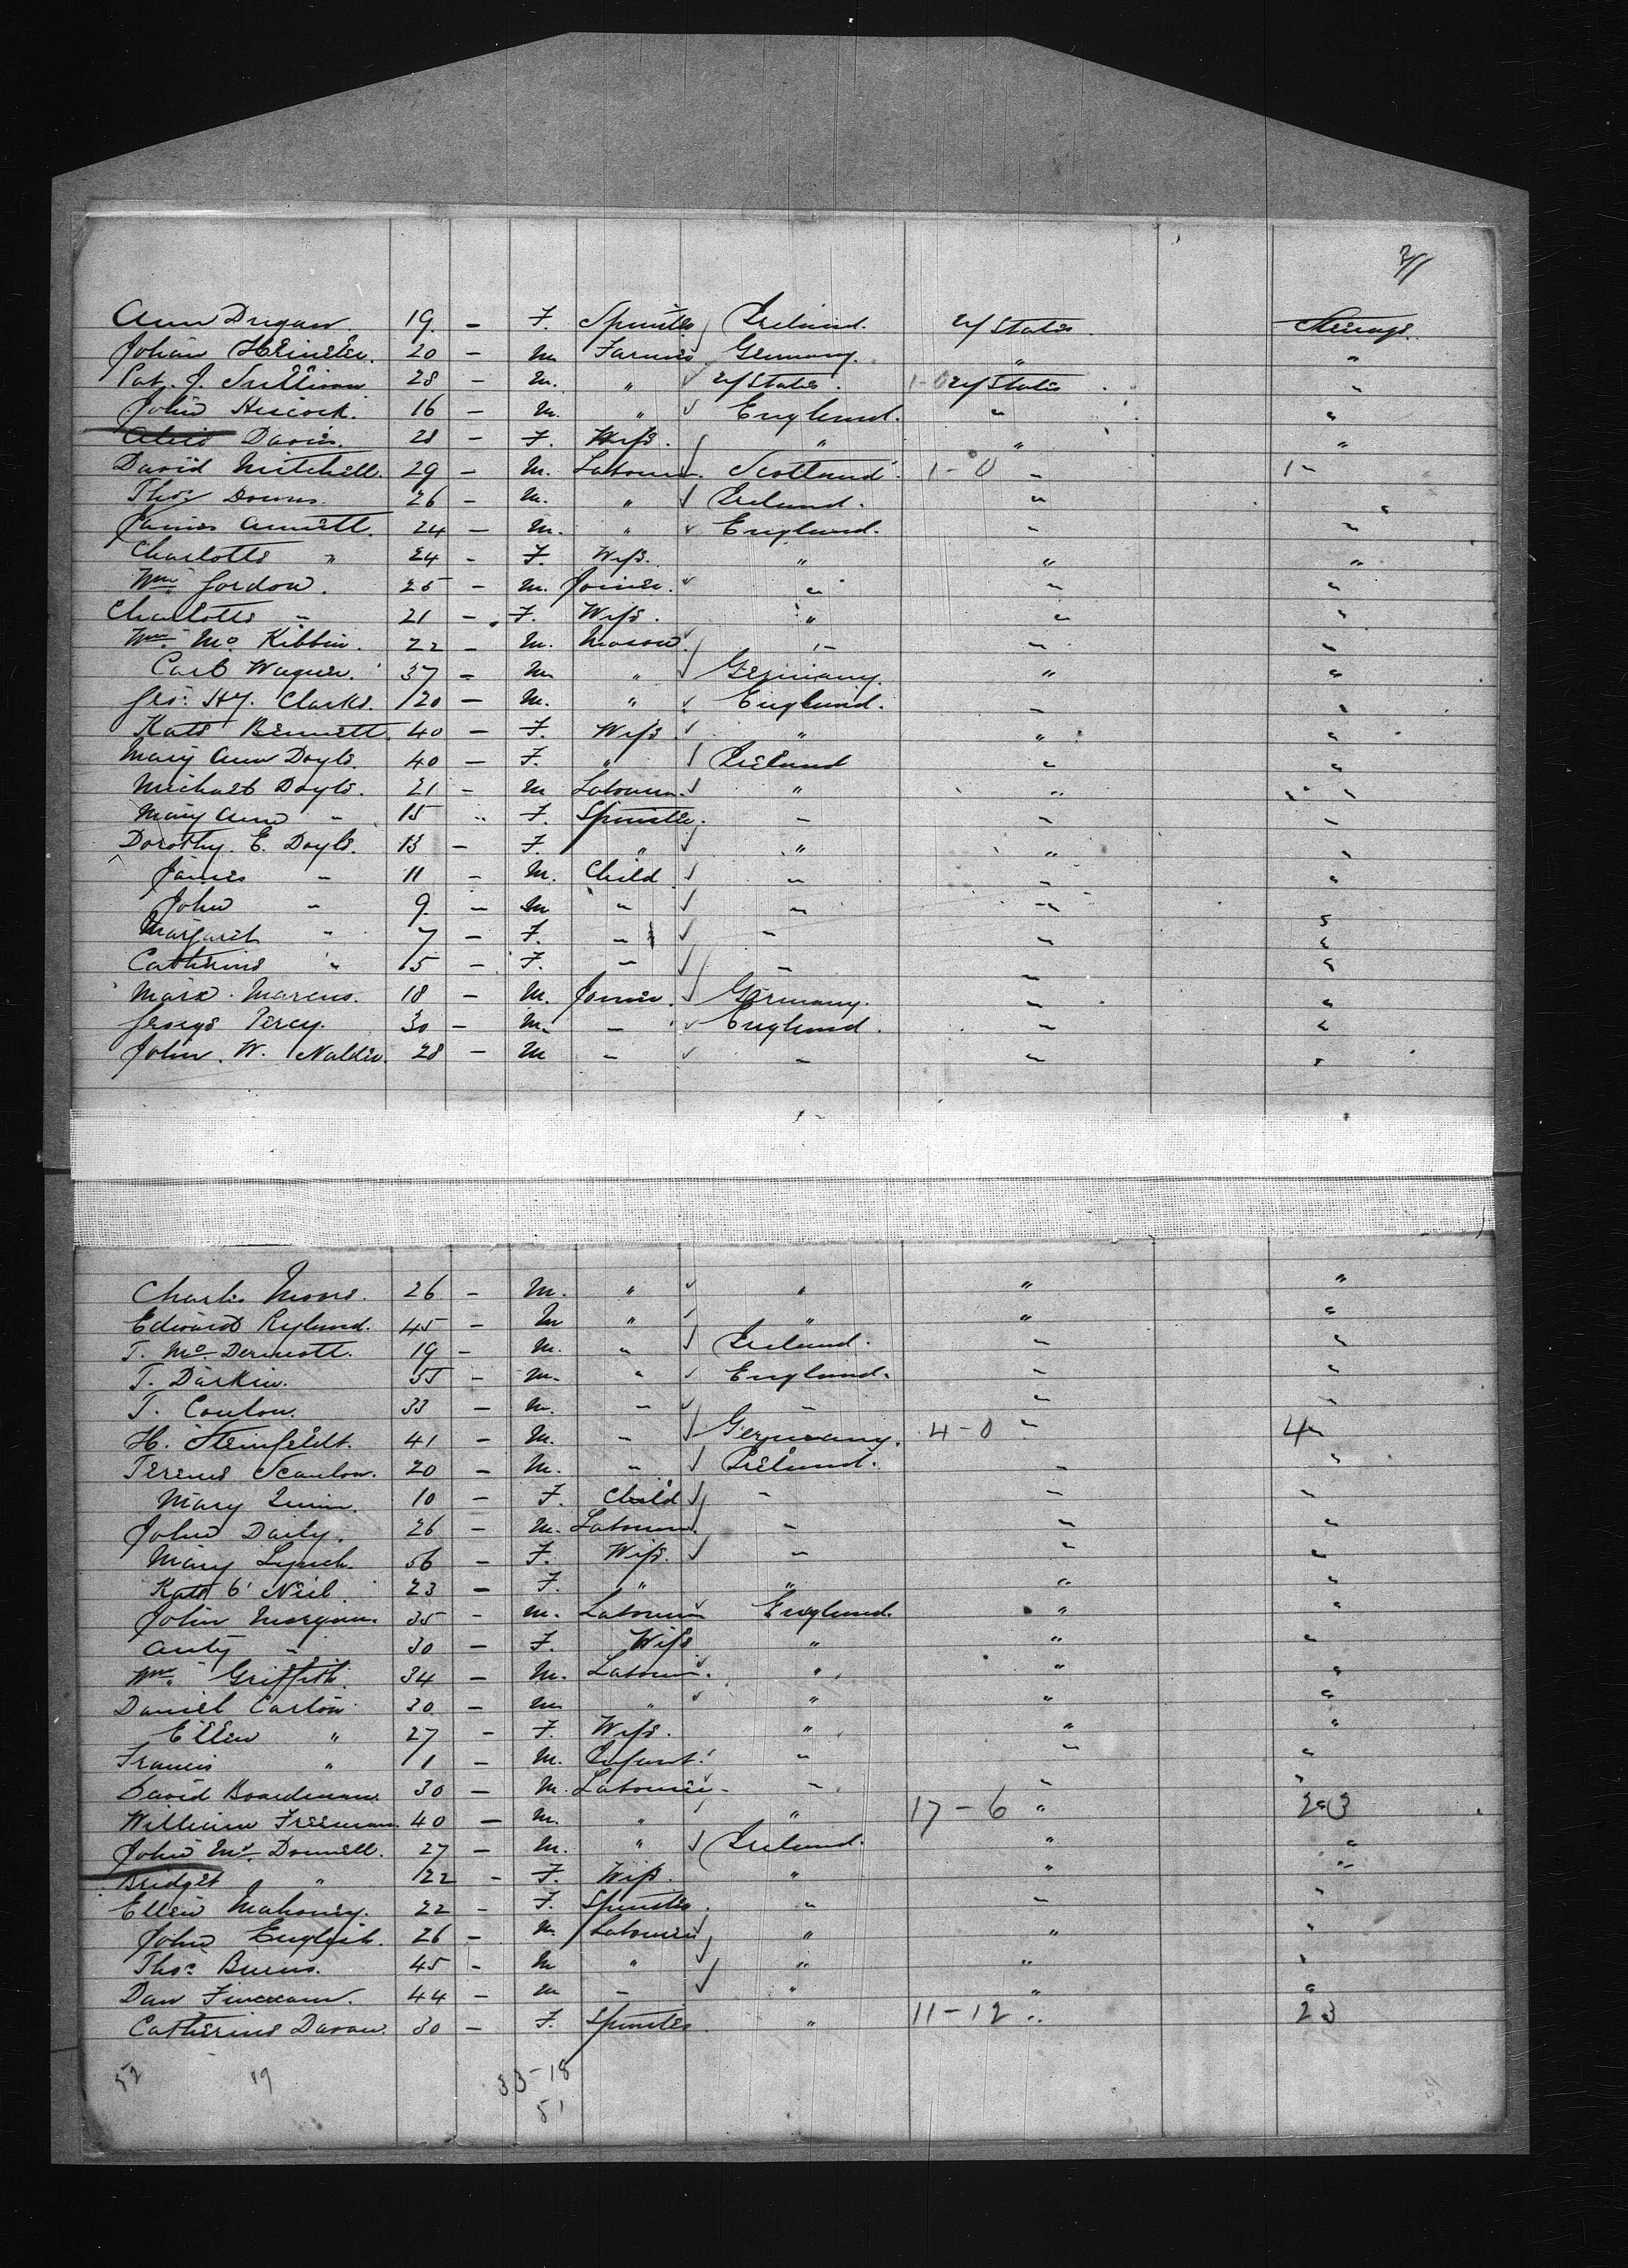 7//
Ann Dugan. 19 - F. Spinster Ireland. U/States. Steerage.
Johan 20 - M. Farmer Germany. " "
Pat. J. Sullivan 28 - M. " ✓ U/States. 1-0 U/States "
John Hiscock. 16 - M. " ✓ England. " "
Davis. 28 - F. Wife. " " "
David Mitchell. 29 - M. Labourer ✓ Scotland. 1-0 " 1 "
Thos. Downs. 26 - M. " ✓ Ireland. " "
James Annett. 24 - M. " ✓ England. " "
Charlotte " 24 - F. Wife. " " "
Wm. Gordon. 25 - M. Joiner. ✓ " " "
Charlotte " 21 - F. Wife. " " "
Wm. Mc Kibbin. 22 - M. Mason. ✓ " " "
Carl Wagner. 37 - M. " ✓ Germany. " "
Geo. Hy. Clarke. 20 - M. " ✓ England. " "
Kate Bennett. 40 - F. Wife. ✓ " " "
Mary Ann Doyle. 40 - F. " ✓ Ireland " "
Michael Doyle. 21 - M Labourer. ✓ " " "
Mary Ann " 15 " F. Spinster. " " "
Dorothy. E. Doyle. 13 - F. " ✓ " " "
James " 11 - M. Child ✓ " " "
John " 9. - M " ✓ " " "
Margaret " 7 - F. " ✓ " " "
Catherine " 5 - F. " ✓ " " "
Marcus. 18 - M. Joiner. ✓ Germany. " "
George Percy. 30 - M. " ✓ England. " "
John. W. Nalder. 28 - M " ✓ " " "
Charles Moore. 26 - M. " ✓ " " "
Edward Ryland. 45 - M " ✓ " " "
T. Mc. Dermott. 19 - M. " ✓ Ireland. " "
T. Darkin. 55 - M. " ✓ England. " "
T. 33 - M. " ✓ " " "
H. Steinfeldt. 41 - M. " ✓ Germany. 4-0 " 4 "
Terence Scanlon. 20 - M. " ✓ Ireland. " "
Mary Quinn 10 - F. Child ✓ " " "
John Daily. 26 - M. Labourer. " " "
Mary Lynch. 56 - F. Wife. ✓ " " "
Kate O' Neil. 23 - F. " " " "
John Morgan. 35 - M. Labourer England. " "
" 30 - F. Wife " " "
Wm. Griffith. 34 - M. Labourer. " " "
Daniel 30 - M " ✓ " " "
Ellen " 27 - F. Wife. " " "
Francis " 1 - M. Infant. " " "
David Boardman. 30 - M. Labourer. " " "
William Freeman. 40 - M. " " 17-6 " 23
John Mc. Donnell. 27 - M. " ✓ Ireland. " "
Bridget " 22 - F. Wife. " " "
Ellen Mahoney. 22 - F. Spinster. " " "
John English. 26 - M Labourer " " "
Thos. Burns. 45 - M " ✓ " " "
Dan 44 - M " ✓ " " "
Catherine 30 - F. Spinster. " 11-12 " 23
52 19 33-18
51